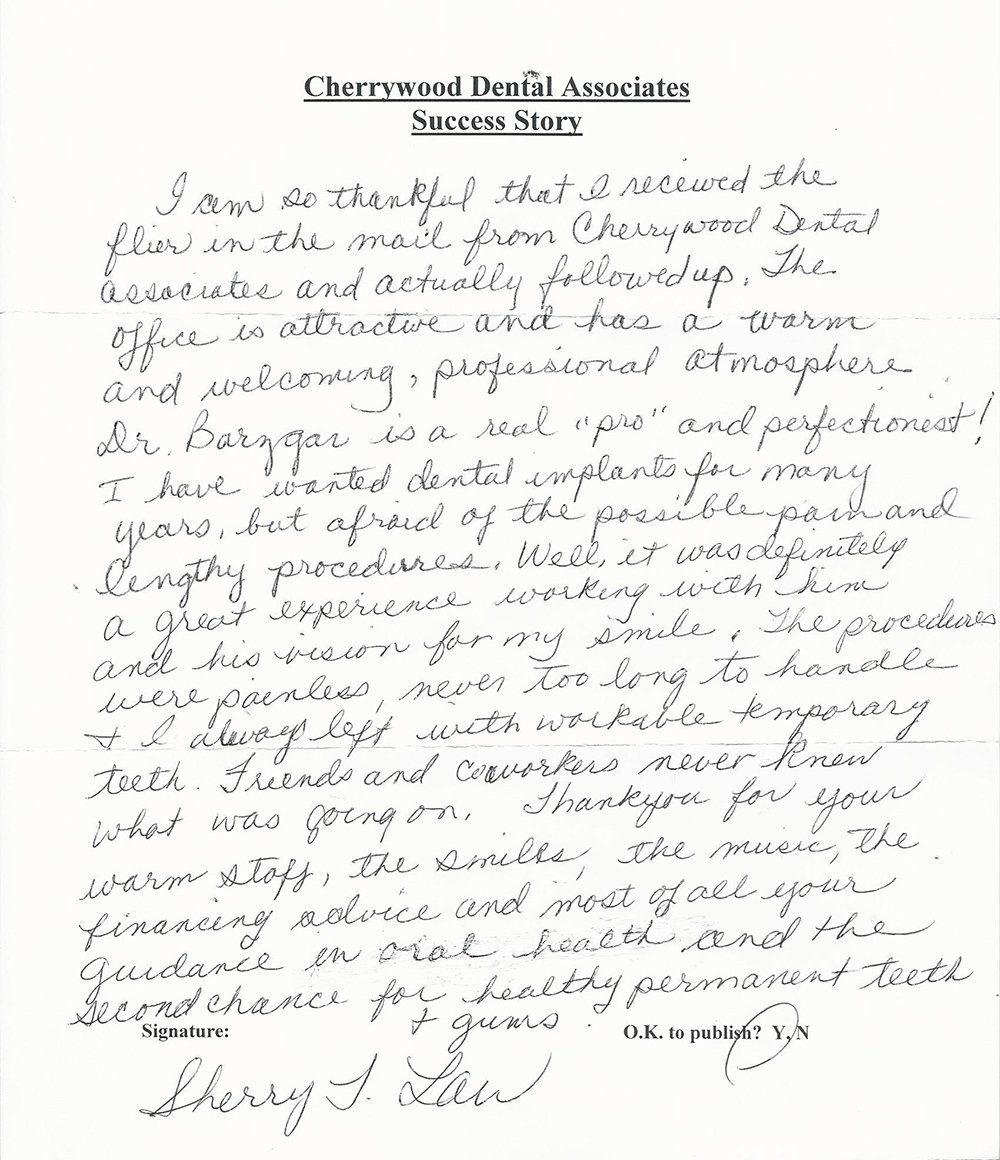 Cherrywood Dental Associates
Success Story
I am so thankful that I received the
flier in the mail from Cherrywood Dental
Associates and actually followed up. The
office is attractive and has a warm
and welcoming, professional atmosphere
Dr. Barzgar is a real "pro" and perfectionist!
I have wanted dental implants for many
years, but afraid of the possible pain and
lengthy procedures. Well, it was definitely
a great experience working with him
and his vision for my smile. The procedures
were painless, never too long to handle
+ I always left with workable temporary
teeth. Friends and coworkers never knew
what was going on. Thankyou for your
warm staff, the smiles, the music, the
financing advice and most of all your
guidance in oral health and the
second chance for healthy permanent teeth
+ gums.
Signature: O.K. to publish? Y, N
Sherry T. Law